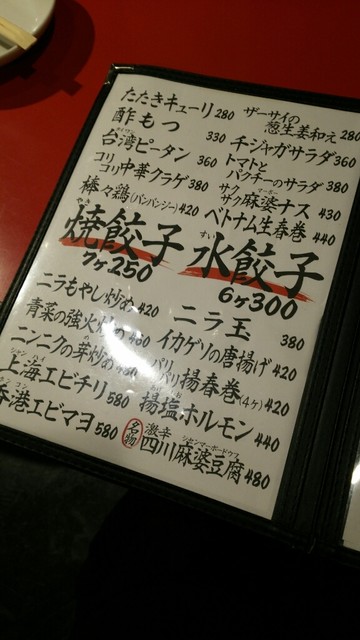 たたきキューリ 280
酢もつ 330
台湾ピータン 360
コリコリ中華クラゲ 380
棒々鶏(バンバンジー) 420
焼餃子
7ヶ250
ニラもやし炒め 420
青菜の強火炒め
ニンニクの芽炒め
上海エビチリ 580
香港エビマヨ 580
ザーサイの
葱生姜和え 280
チジャガサラダ 360
トマトと
パクチーのサラダ 380
サクザク麻婆ナス 430
ベトナム生春巻 440
水餃子
6ヶ300
ニラ玉 380
イカゲソの唐揚げ 420
パリパリ揚春巻(4ヶ) 420
揚塩ホルモン 440
名物 激辛
四川麻婆豆腐 480